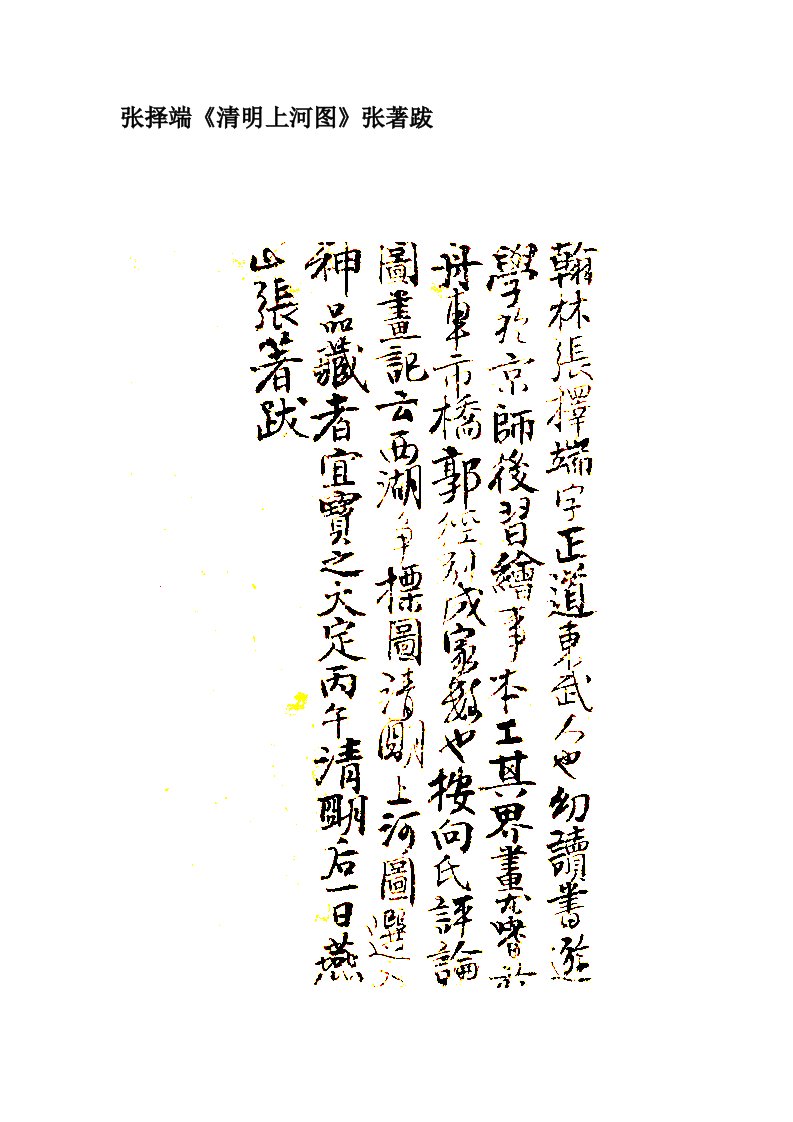 张择端《清明上河图》张著跋
翰林張擇端字正道東武人也幼讀書遊
學於京師後習繪事本工其界畫尤嗜於
舟車市橋郭徑別成家數也按向氏評論
圖畫記云西湖争標圖清明上河圖選入
神品藏者宜寶之大定丙午清明后一日燕
山張著跋